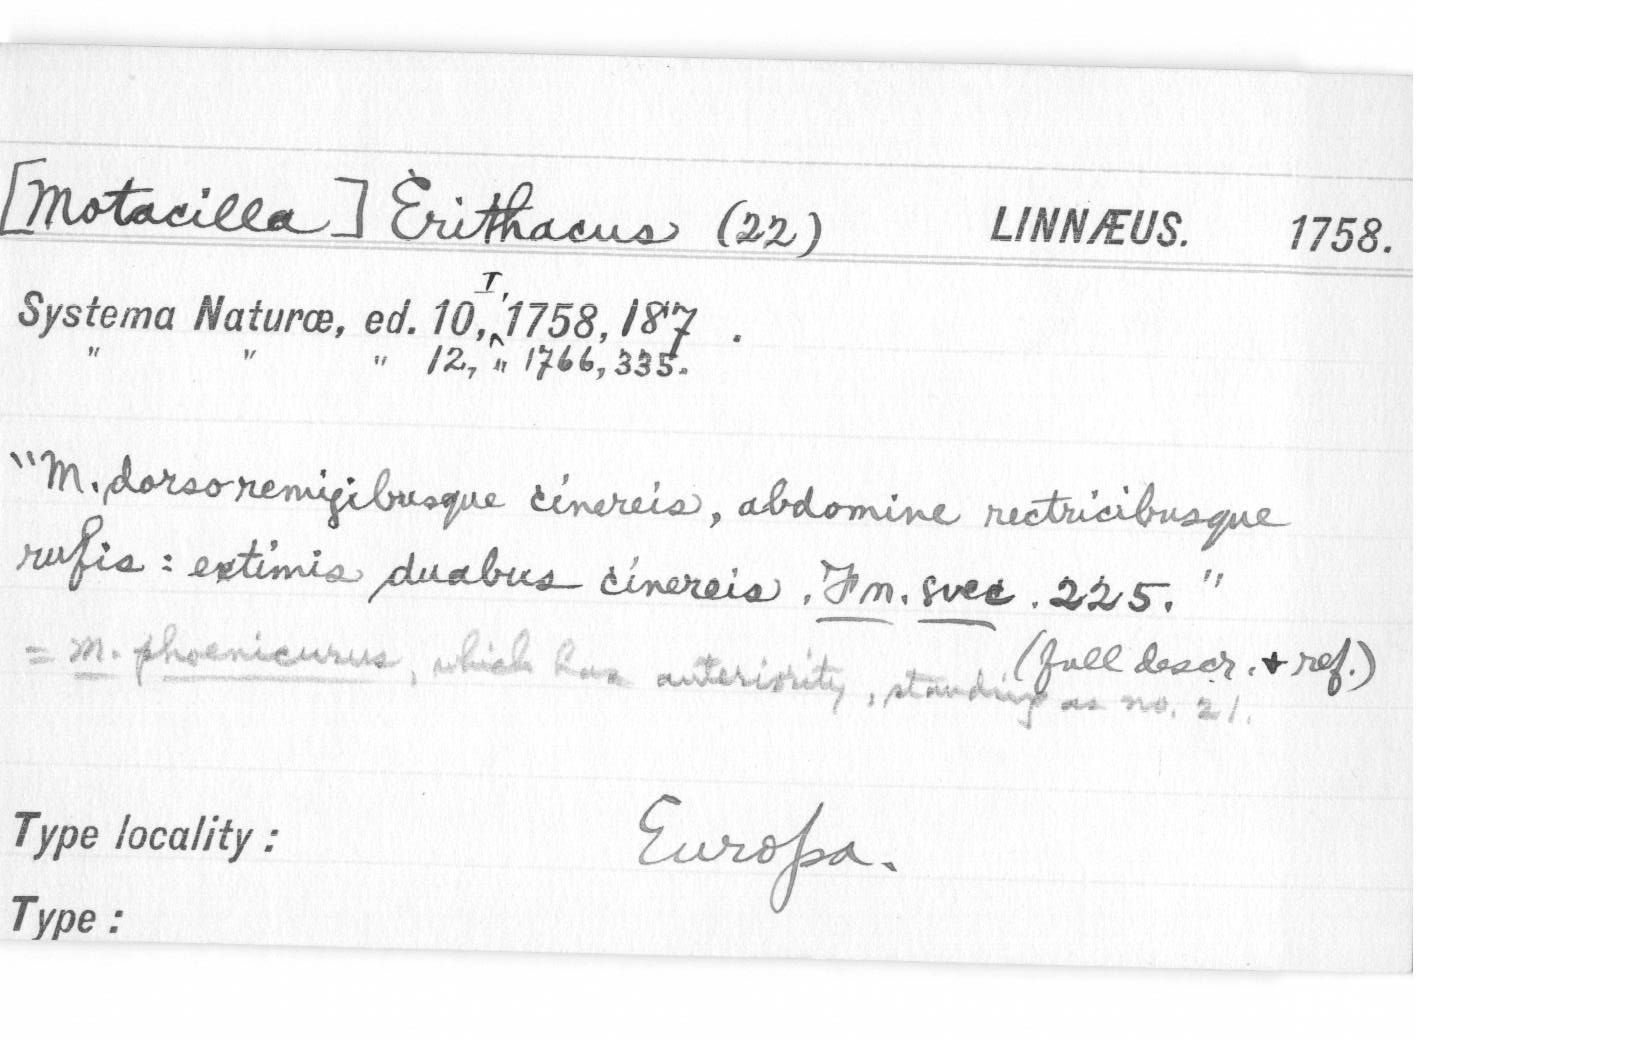 [Motacilla] Erithacus (22) LINNÆUS. 1758.
Systema Naturæ, ed. 10, I, 1758, 187.
" " " 12, " 1766, 335.
"M. dorso remigibusque cinereis, abdomine rectricibusque
rufis: extimis duabus cinereis. Fn. svec. 225."
(full descr. + ref.)
= M. phoenicurus, which has anteriority, standing as no. 21.
Type locality: Europa.
Type: